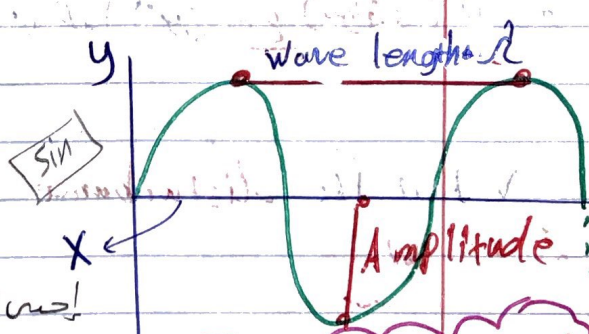 y Wave length: λ
Sin
X Amplitude